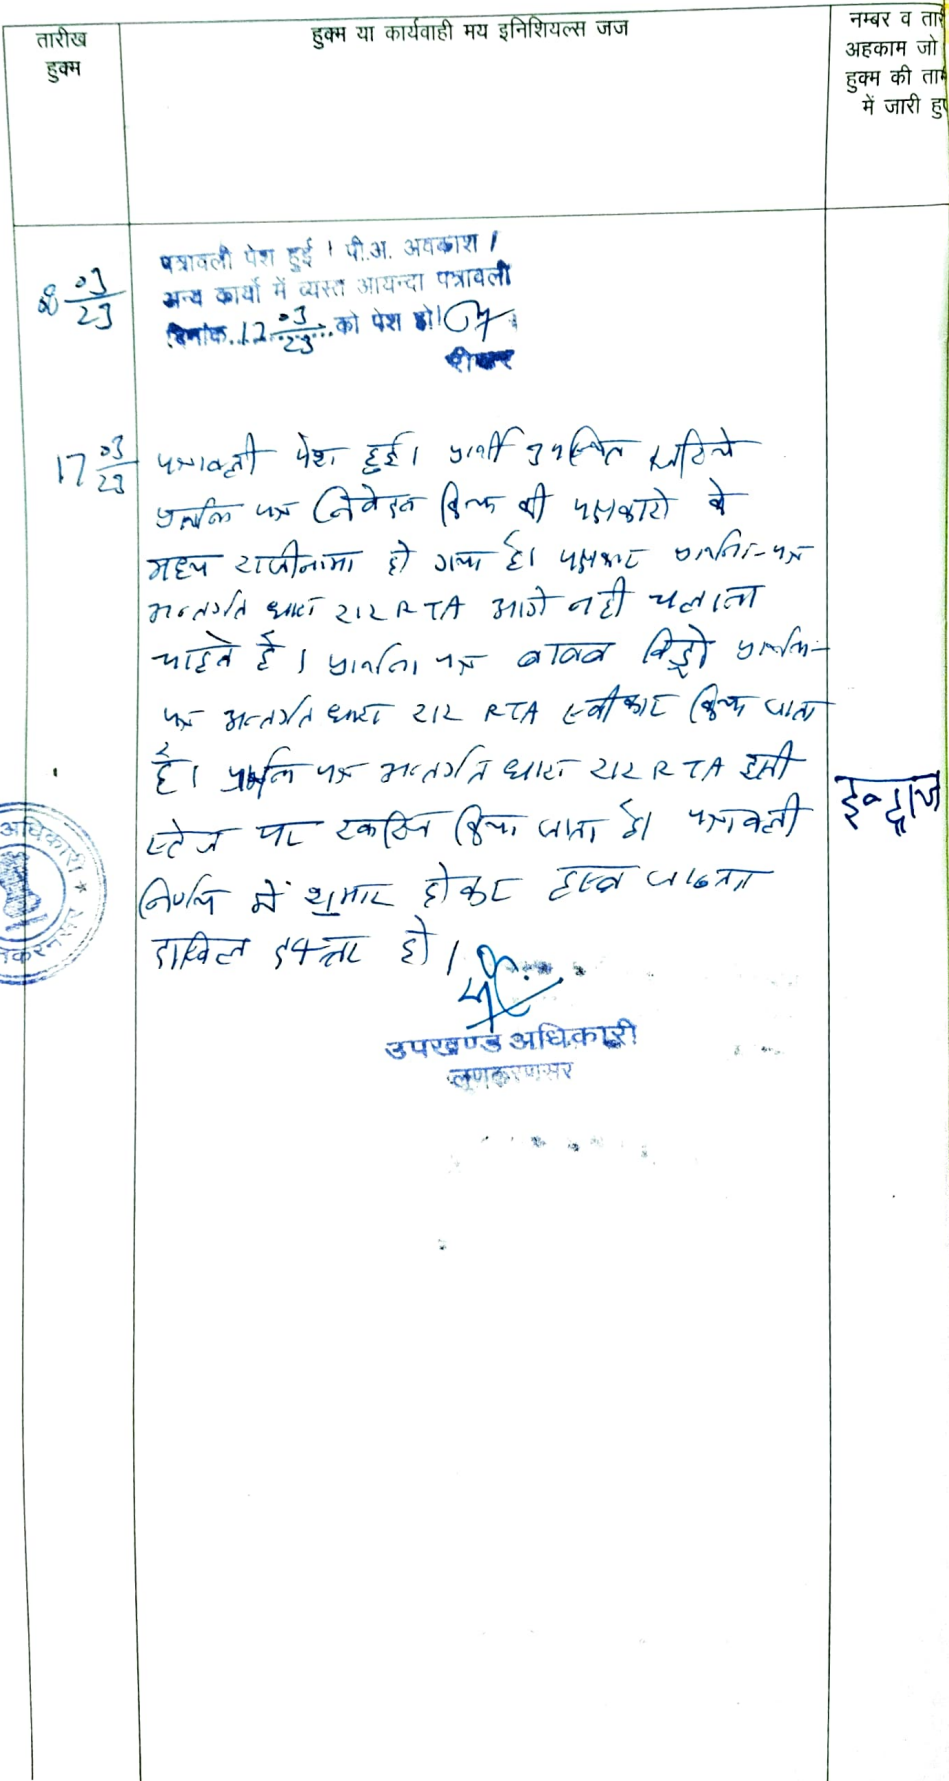 तारीख
हुक्म
हुक्म या कार्यवाही मय इनिशियल्स जज
नम्बर व तार
अहकाम जो
हुक्म की ताम
में जारी हुए
8 03/23
पत्रावली पेश हुई। पी.अ. अवकाश।
अन्य कार्यो में व्यस्त आयन्दा पत्रावली
दिनांक 17 03/23 को पेश हो।
17 03/23
पत्रावली पेश हुई। प्रार्थी उपस्थित
प्रार्थना पत्र निवेदन किया की पक्षकारो के
मध्य राजीनामा हो गया है। पक्षकार प्रार्थना-पत्र
अन्तर्गत धारा 212 RTA आगे नही चलाना
चाहते है। प्रार्थना पत्र बाबत विड्रो प्रार्थना-
पत्र अन्तर्गत धारा 212 RTA स्वीकार किया जाता
है। प्रार्थना पत्र अन्तर्गत धारा 212 RTA इसी
स्टेज पर खारिज किया जाता है। पत्रावली
निर्णय में शुमार होकर हस्ब जाब्ता
दाखिल दफ्तर हो।
उपखण्ड अधिकारी
लूणकरणसर
इन्द्राज
अधिकारी